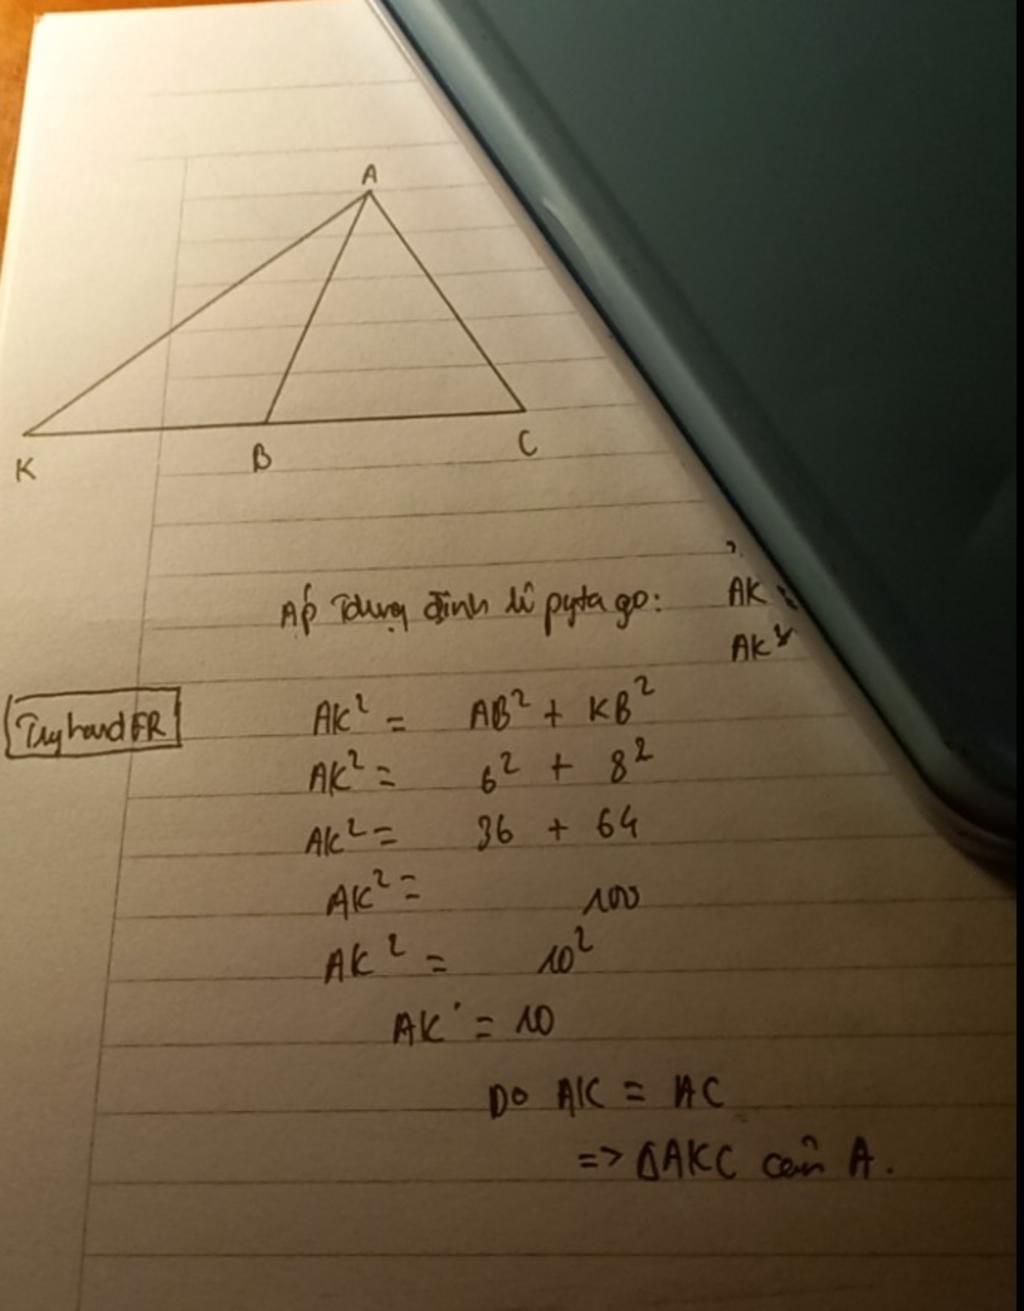 A
K
B
C
Áp dụng định lí pytago:
AK
AK²
Tryhard FR
AK² = AB² + KB²
AK² = 6² + 8²
AK² = 36 + 64
AK² = 100
AK² = 10²
AK = 10
Do AK = AC
=> ΔAKC cân A.